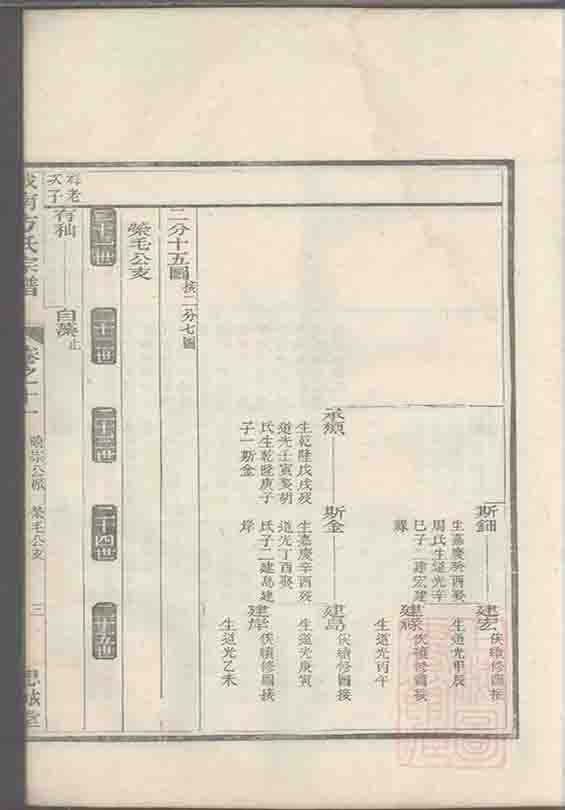 斯鈿
生嘉慶癸酉娶
周氏生道光辛
巳子二建宏建
祿
建宏
俟續修圖接
生道光甲辰
建祿
俟續修圖接
生道光丙午
承頌
生乾隆戊戌歿
道光壬寅娶胡
氏生乾隆庚子
子一斯金
斯金
生嘉慶辛酉歿
道光丁酉娶
氏子二建島建
岸
建島
俟續修圖接
生道光庚寅
建岸
俟續修圖接
生道光乙未
二分十五圖
接二分七圖
榮毛公支
二十一世
二十二世
二十三世
二十四世
二十五世
有老
次子
有秈
自藻
止
城南方氏宗譜
卷之十一
曉崇公派
榮毛公支
三
思誠堂